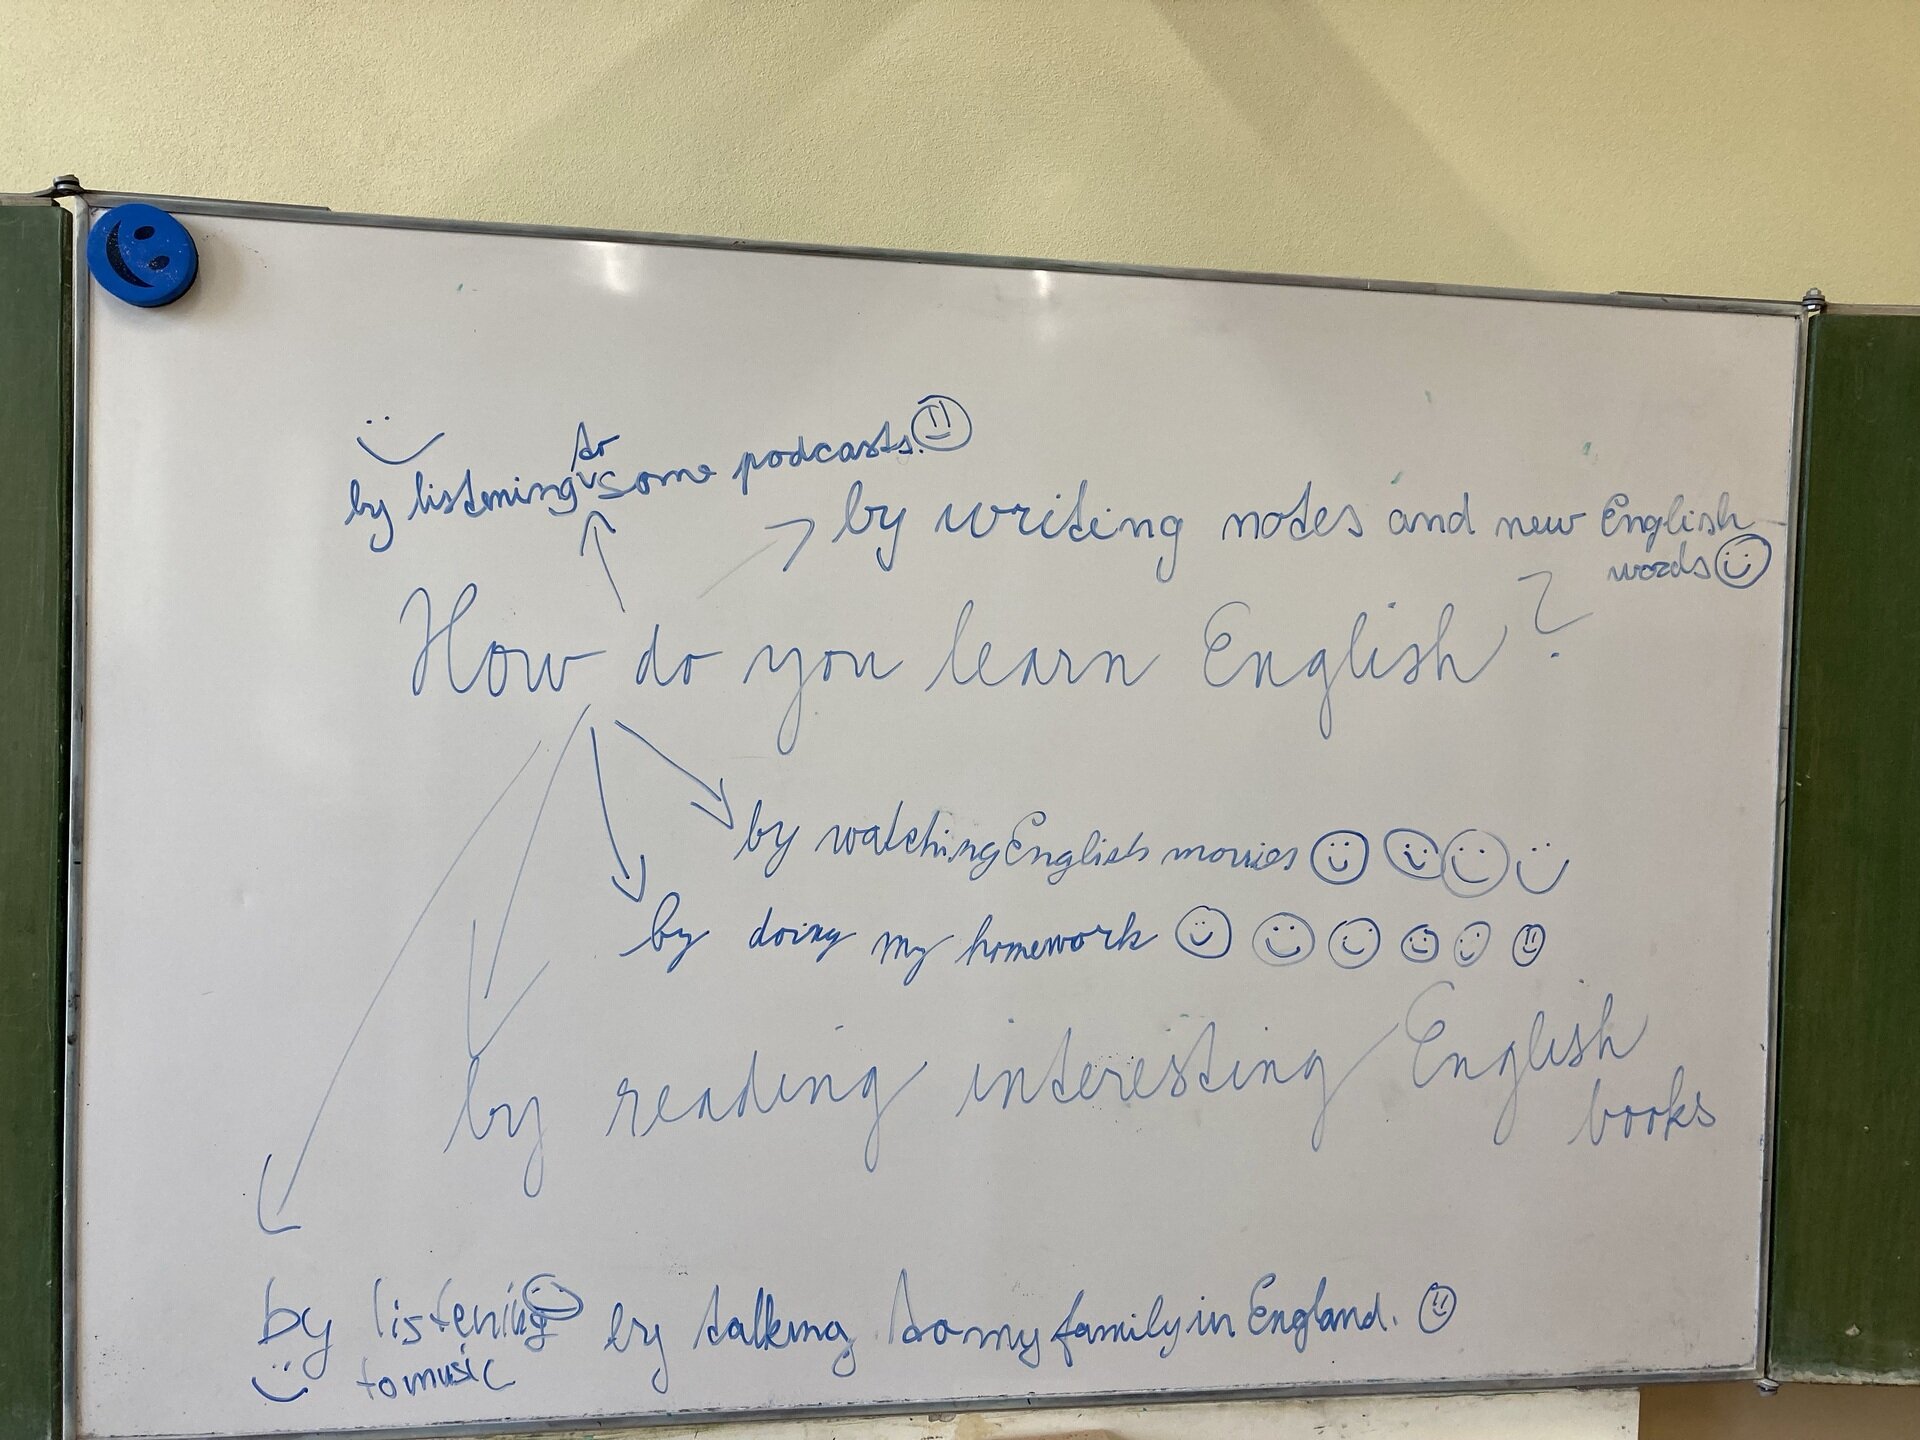 by listening to some podcasts.
by writing notes and new English
words
How do you learn English?
by watching English movies
by doing my homework
by reading interesting English
books
by listening
to music
by talking to my family in England.